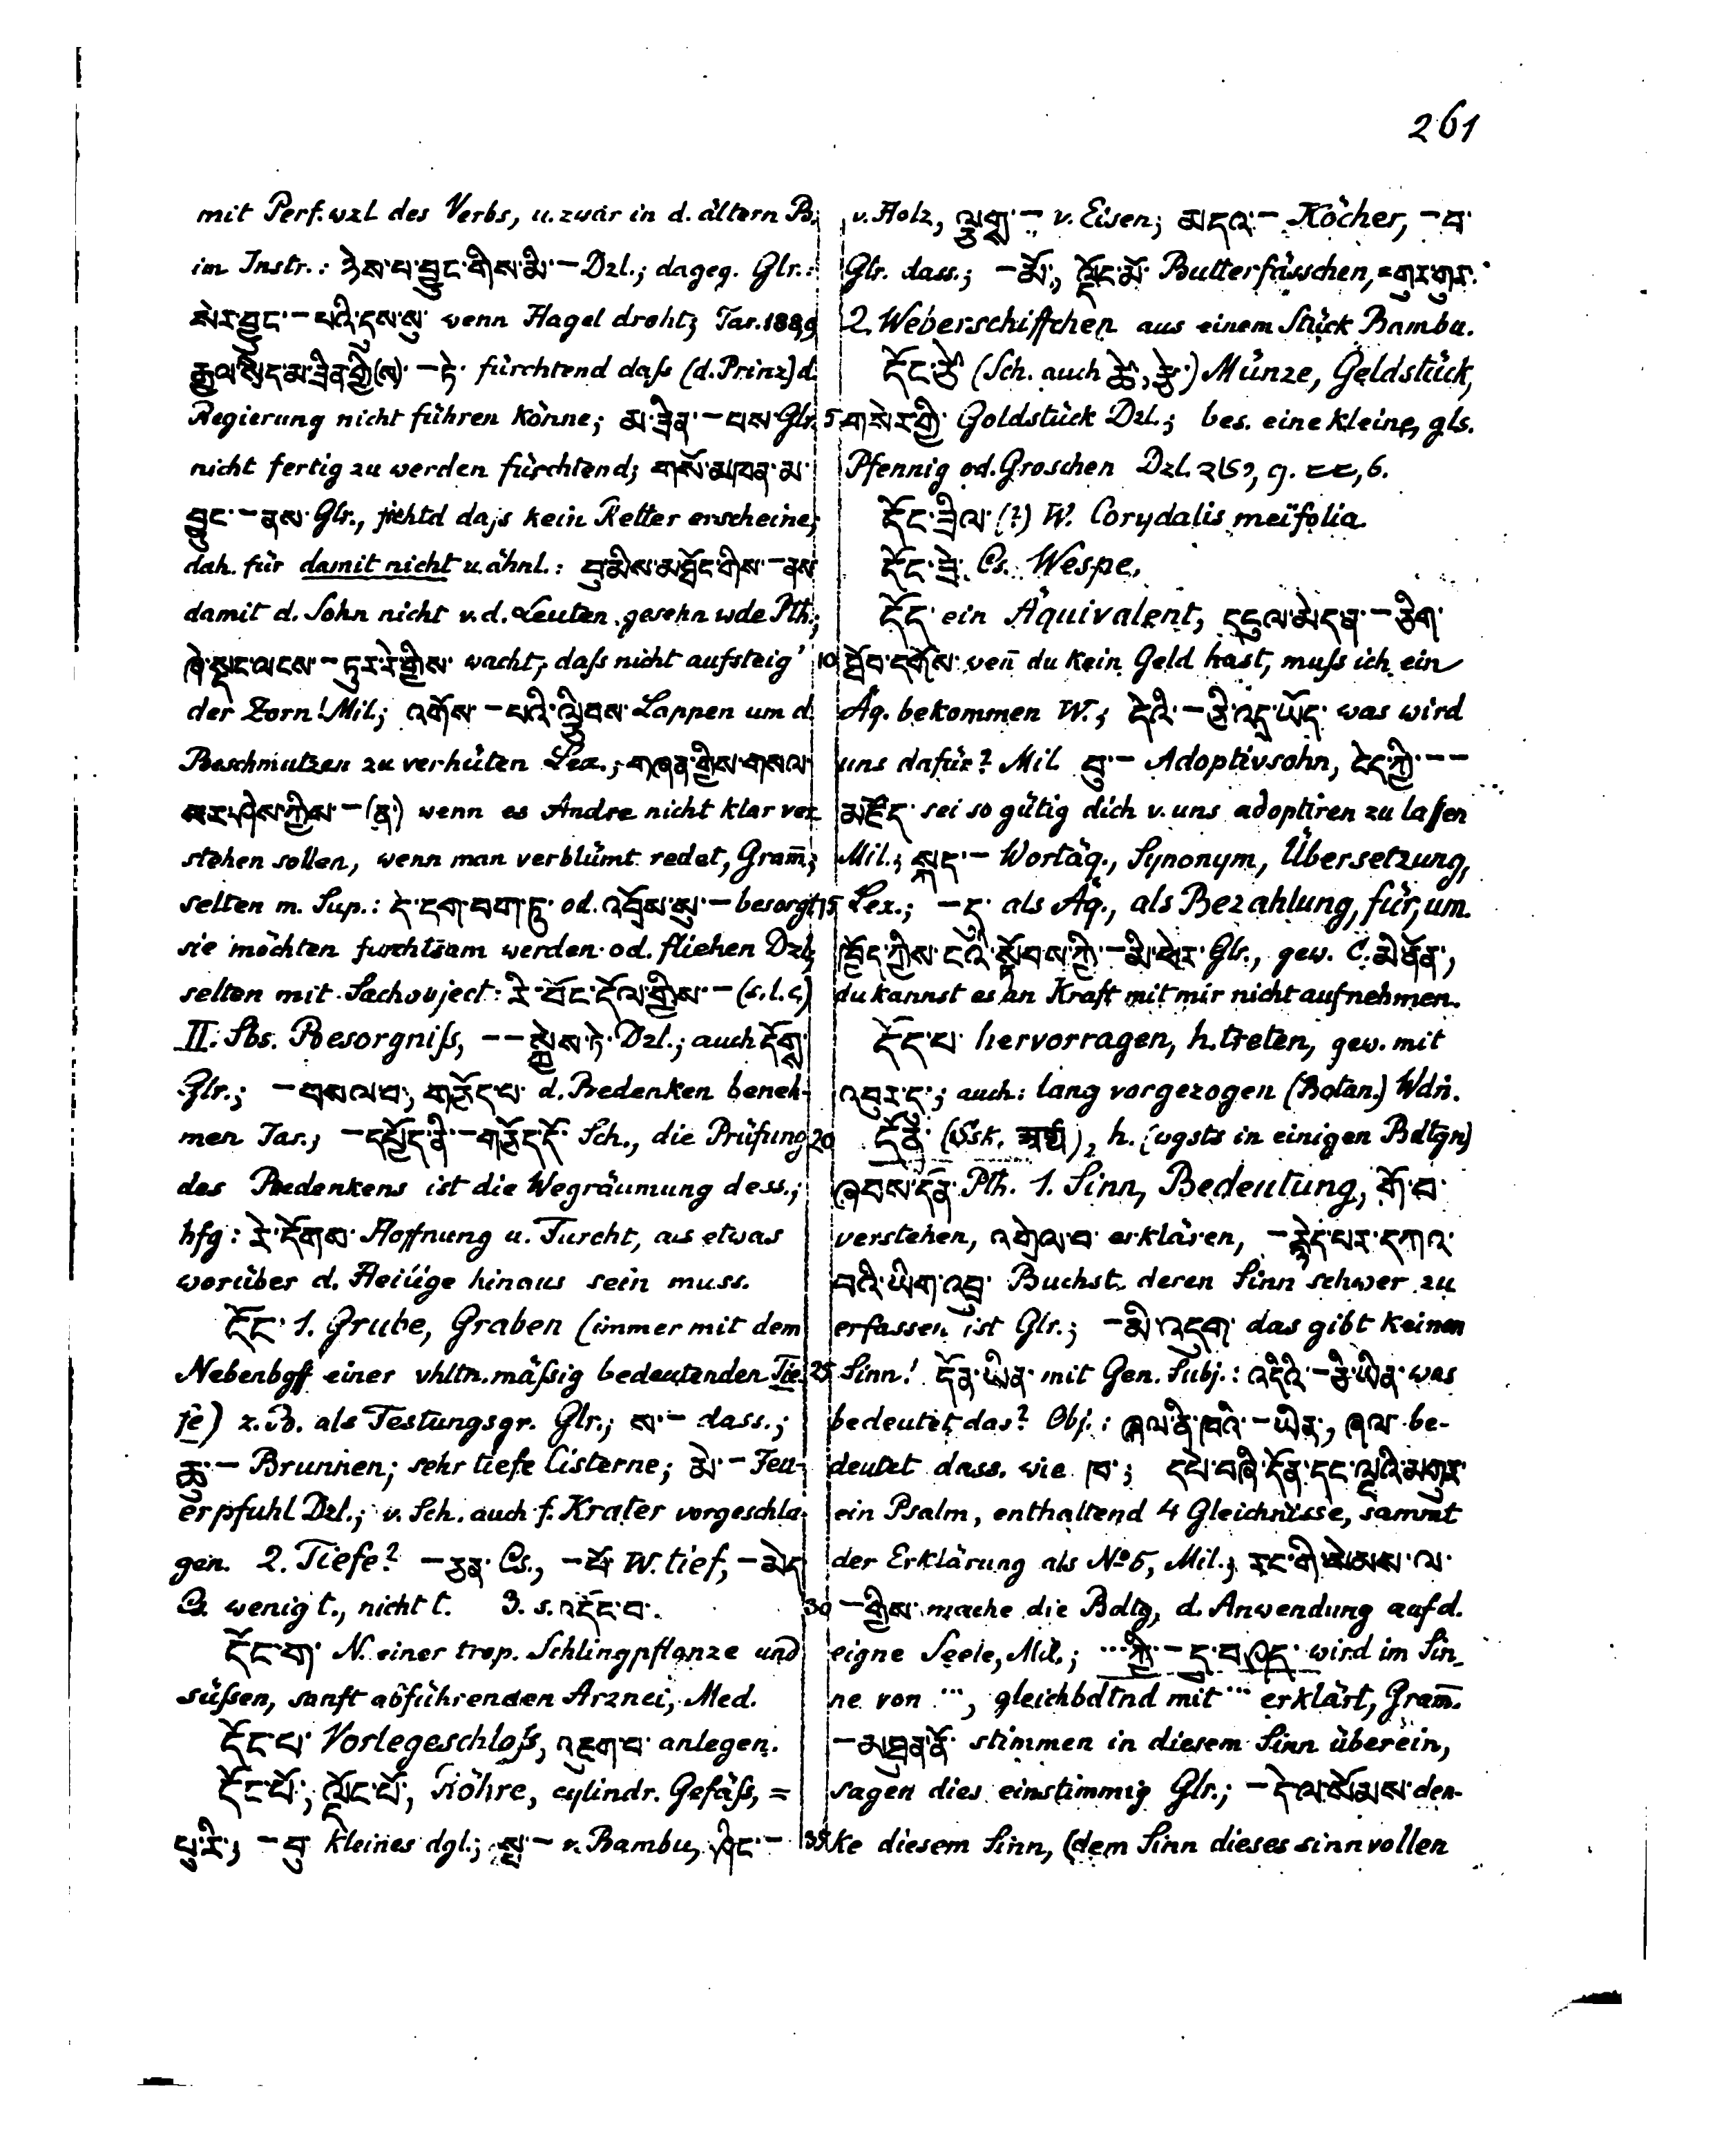 261
mit Perf. wzl des Verbs, u. zwar in d. ältern B.
im Instr.: ཉེས་པ་བྱུང་གིས་མི་ — Dzl.; dageg. Glr.:
སེར་བྱུང་ — པའི་དུས་སུ་ wenn Hagel droht; Tar. 188,9
རྒྱལ་སྲིད་མ་ཟིན་གྱི(ས)་ — ཏེ་ fürchtend daſs (d. Prinz) d.
Regierung nicht führen könne; མ་ཟིན་ — པས་ Glr.
nicht fertig zu werden fürchtend; གསོ་མཁན་མ་
བྱུང་ — ནས་ Glr., daſs kein Retter erscheine;
dah. für damit nicht u. ähnl.: བུ་མིས་མཐོང་གིས་ — ནས
damit d. Sohn nicht v. d. Leuten gesehn wde Pth.;
ཞེ་སྡང་ལངས་ — ཏུར་རེ་གྱིས་ wacht, daſs nicht aufsteig'
der Zorn! Mil.; འགོས་ — པའི་ལྷིབས་ Lappen um d.
Beschmutzen zu verhüten Lex.; གཞན་གྱིས་གསལ་
བར་ཤེས་ཀྱིས་ — (ན་) wenn es Andre nicht klar ver-
stehen sollen, wenn man verblümt redet, Gram̄.;
selten m. Sup.: དེ་དག་བག་ཏུ་ od. འབྲོས་སུ་ — besorgt,
sie möchten furchtsam werden od. fliehen Dzl.;
selten mit Sachobject: རི་བོང་དོལ་གྱིས་ — (s. l. c.)
II. Sbs. Besorgniſs, — — སྐྱེས་ཏེ་ Dzl.; auch དོགས་
Glr.; — བསལ་བ་, གཅོད་པ་ d. Bedenken beneh-
men Tar.; — དཔྱོད་ནི་ — གཅོད་དོ་ Sch., die Prüfung
des Bedenkens ist die Wegräumung dess.;
hfg: རེ་དོགས་ Hoffnung u. Furcht, als etwas
worüber d. Heilige hinaus sein muss.
དོང་ 1. Grube, Graben (immer mit dem
Nebenbgff einer vhltn. mäſsig bedeutenden Tie-
fe) z. B. als Festungsgr. Glr.; ས་ — dass.;
ཆུ་ — Brunnen; sehr tiefe Cisterne; མེ་ — Feu-
erpfuhl Dzl.; v. Sch. auch f. Krater vorgeschla-
gen. 2. Tiefe? — ཅན་ Cs., — པོ་ W. tief, — མེད
Cs. wenig t., nicht t. 3. s. འདོང་བ་.
དོང་ག་ N. einer trop. Schlingpflanze und
süſsen, sanft abführenden Arznei, Med.
དོང་པ་ Vorlegeschloſs, འཇུག་པ་ anlegen.
དོང་པོ་, ལྡོང་པོ་, Röhre, cylindr. Gefäſs, =
པུ་རི་; — བུ་ kleines dgl.; སྨྱུ་ — v. Bambu, ཤིང་ —
v. Holz, ལྕགས་ — v. Eisen; མདའ་ — Köcher, — བ་
Glr. dass.; — མོ་, ལྡོང་མོ་ Butterfässchen, = གུར་གུར་
2. Weberschiffchen aus einem Stück Bambu.
དོང་ཙེ་ (Sch. auch ཚེ་, རྩེ་) Münze, Geldstück,
5 གསེར་གྱི་ Goldstück Dzl.; bes. eine kleine, gls.
Pfennig od. Groschen Dzl. 6.
དོང་ཟིལ་ (?) W. Corydalis meïfolia.
དོང་ཟེ་ Cs. Wespe.
དོད་ ein Äquivalent, དངུལ་མེད་ན་ — ཅིག་
10 ཐོབ་དགོས་ wen̄ du kein Geld hast, muſs ich ein
Äq. bekommen W.; དེའི་ — ཅི་འདྲ་ཡོད་ was wird
uns dafür? Mil. བུ་ — Adoptivsohn, ངེད་ཀྱི་ — —
མཛོད་ sei so gütig dich v. uns adoptiren zu laſsen
Mil.; སྐད་ — Wortäq., Synonym, Übersetzung,
15 Lex.; — དུ་ als Äq., als Bezahlung, für, um.
ཁྱོད་ཀྱིས་ངའི་སྟོབས་ཀྱི་ — མི་ཐེར་ Glr., gew. C. མི་ཐོན་,
du kannst es an Kraft mit mir nicht aufnehmen.
དོད་པ་ hervorragen, h. treten, gew. mit
འབུར་དུ་; auch: lang vorgezogen (Botan.) Wdn̄.
20 དོན་ (Ssk. अर्थ), h. (wgsts in einigen Bdtgn)
ཞབས་དོན་ Pth. 1. Sinn, Bedeutung, གོ་བ་
verstehen, འགྲེལ་བ་ erklären, — རྙེད་པར་དཀའ་
བའི་ཡིག་འབྲུ་ Buchst. deren Sinn schwer zu
erfassen ist Glr.; — མི་འདུག་ das gibt keinen
25 Sinn! དོན་ཡིན་ mit Gen. Subj.: འདིའི་ — ཅི་ཡིན་ was
bedeutet das? Obj.: ཞལ་ནི་ཁའི་ — ཡིན་, ཞལ་ be-
deutet dass. wie ཁ་; དཔེ་བཞི་དོན་དང་ལྔའི་མགུར་
ein Psalm, enthaltend 4 Gleichnisse, sammt
der Erklärung als No 5, Mil.; རང་གི་སེམས་ལ་
30 — གྱིས་ mache die Bdtg, d. Anwendung auf d.
eigne Seele, Mil.; ... ཀྱི་ — དུ་བཤད་ wird im Sin-
ne von ..., gleichbdtnd mit ... erklärt, Gram̄.
— མཐུན་ནོ་ stimmen in diesem Sinn überein,
sagen dies einstimmig Glr.; — དེ་ལ་སོམས་ den-
35 ke diesem Sinn, (dem Sinn dieses sinnvollen